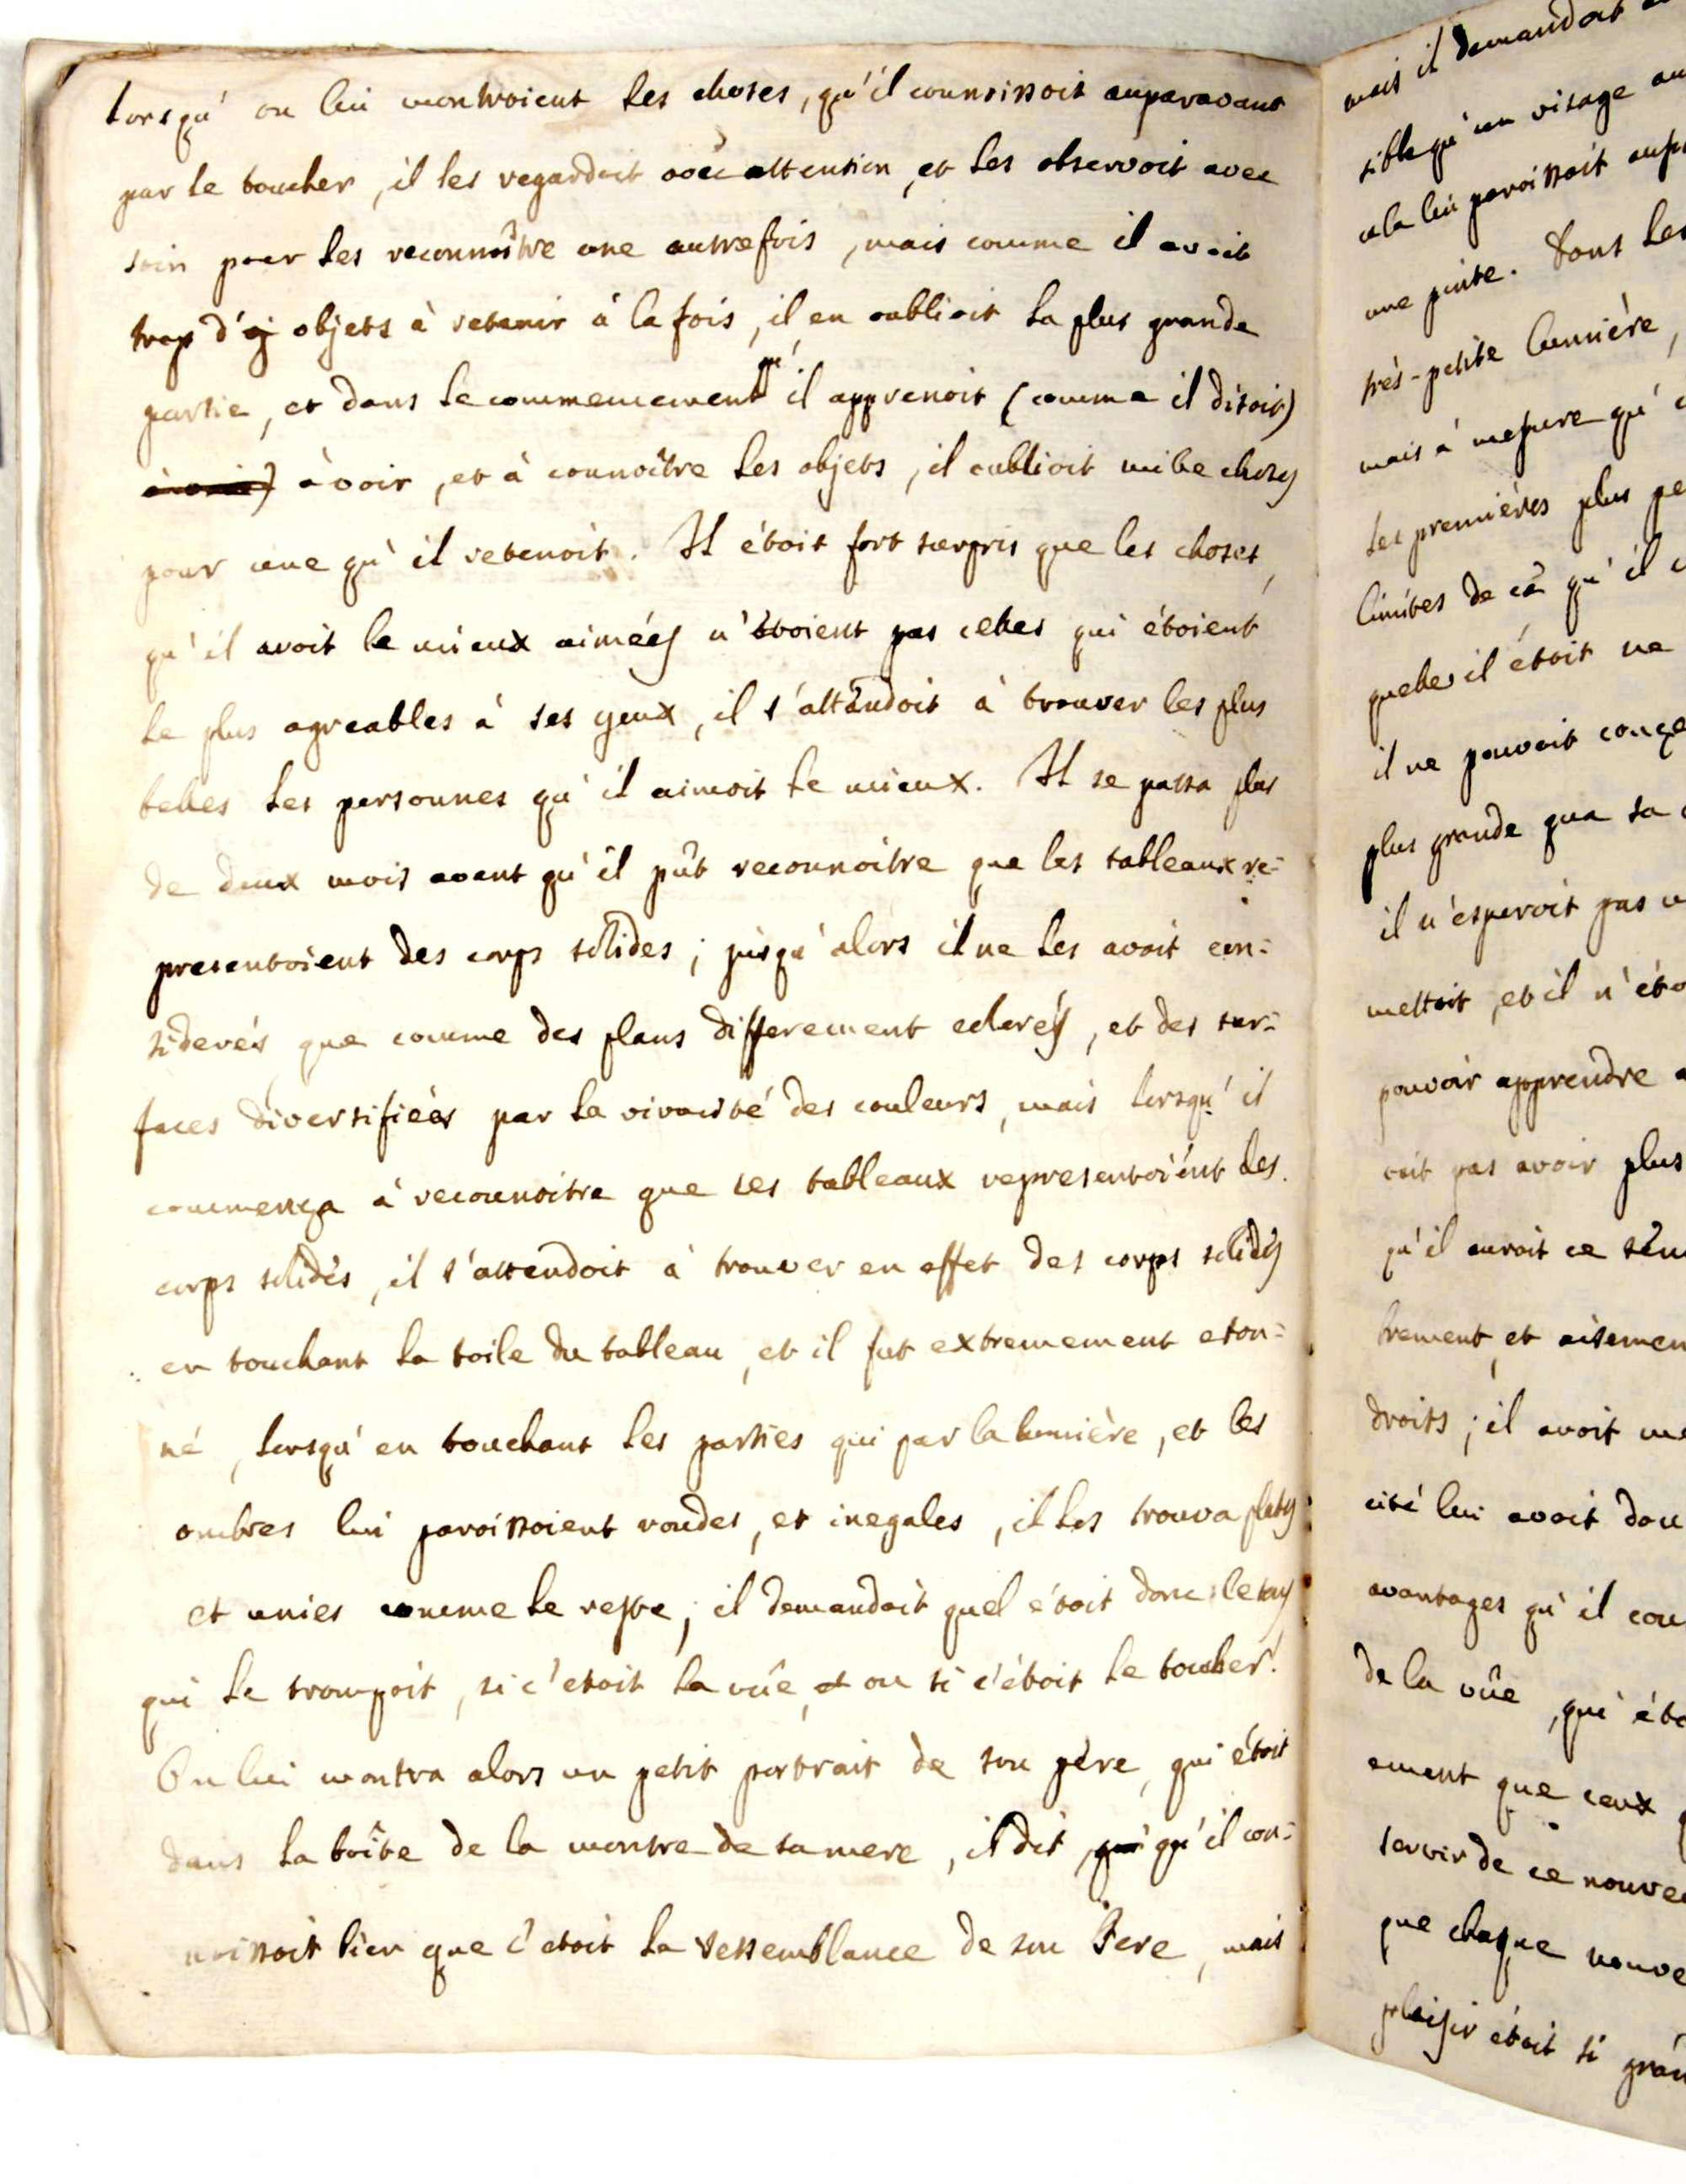 lorsqu' on lui montroient les choses, qu'il connoissoit auparavant
par le toucher, il les regardoit avec attention, et les observoit avec
soin pour les reconnoître une autrefois, mais comme il avoit
trop d'oj objets à retenir à la fois, il en oublioit la plus grande
partie, et dans le commencement qu' il apprenoit (comme il disoit)
à voir, et à connoître les objets, il oublioit mille choses
pour une qu' il retenoit. Il étoit fort surpris que les choses,
qu'il avoit le mieux aimées n'étoient pas celles qui étoient
le plus agreables à ses yeux, il s'attendoit à trouver les plus
belles les personnes qu'il aimoit le mieux. Il se passa plus
de deux mois avant qu'il pût reconnoître que les tableaux re-
presentoient des corps solides; jusqu'alors il ne les avoit con-
siderés que comme des plans differement eclerés, et des sur-
faces diversifiées par la vivacité des couleurs, mais lorsqu'il
commença à reconnoitre que ces tableaux representoient des
corps solides, il s'attendoit à trouver en effet des corps solides
en touchant la toile du tableau, et il fut extremement eton-
né, lorsqu'en touchant les parties qui par la lumière, et les
ombres lui paroissoient rondes, et inegales, il les trouva plates
et unies comme le reste; il demandoit quel étoit donc le sens
qui le trompoit, si c'etoit la vûe, et ou si c'étoit le toucher.
On lui montra alors un petit portrait de son père, qui étoit
dans la boîte de la montre de sa mere, il dit, qu' qu'il con-
noissoit bien que c'etoit la ressemblance de son Pere, mais
mais il demandoit
sible qu'un visage
cela lui paroissoit
une pinte. Tous les
très-petite lumière,
mais à mesure qu'
les premières plus
limites de ce qu'il
quelles il étoit ne
il ne pouvoit
plus grande que sa
il n'esperoit pas
mettoit, et il n'
pouvoir apprendre
roit pas avoir plus
qu'il auroit ce
brement, et
droits; il avoit
cité lui avoit
avantages qu'il
de la vûe, qui
ement que ceux
servir de ce
que chaque
plaisir étoit si